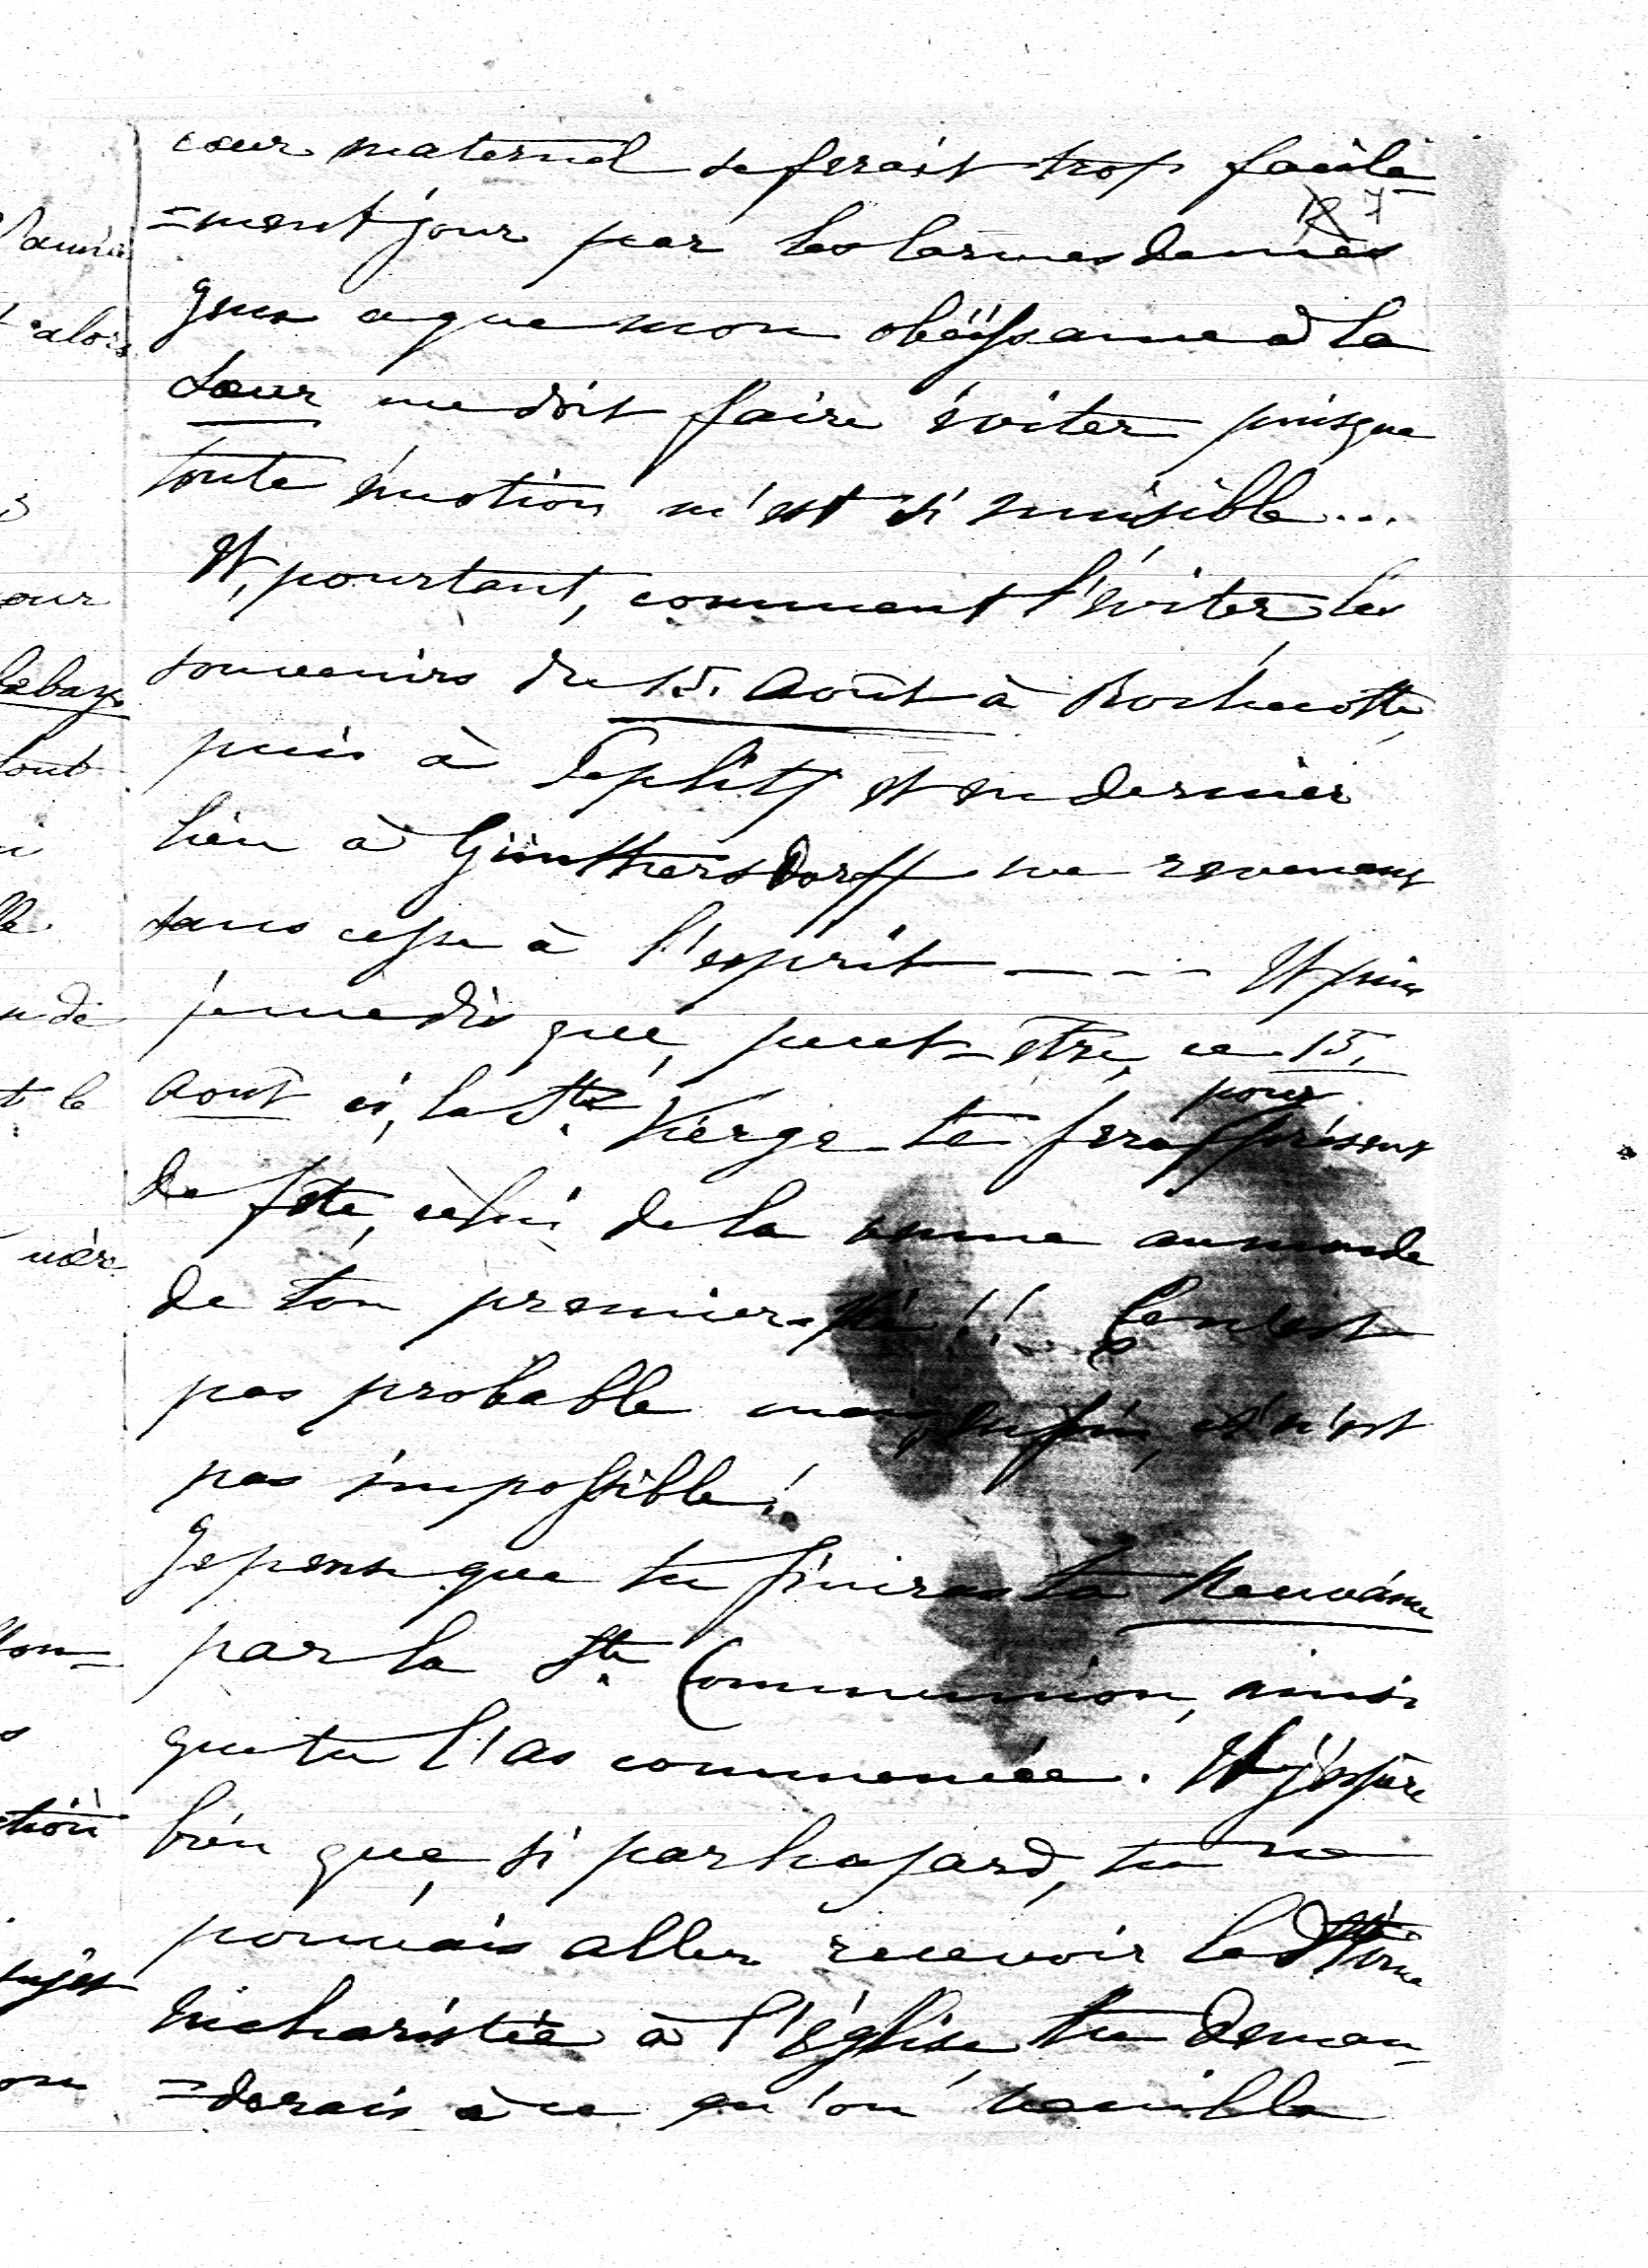 cœur maternel se ferait trop facile
12 7
=ment jour par les larmes de mes
yeux ce que mon obéïssance à la
Sœur me doit faire éviter puisque
toute émotion m'est si nuisible...
Et, pourtant, comment l'éviter les
souvenirs du 15. Août à Rochecotte,
puis à Teplitz et en dernier
lieu à Günthersdorff me revenant
sans cesse à l'esprit - - - Et puis
je me dis que, peut-être, ce 15.
Août ci, la Ste Vierge te fera pour présent
de fête, celui de la venue au monde
de ton premier né!!... Ce n'est
pas probable mais, enfin, ce n'est
pas impossible!
Je pense que tu finiras ta Neuvaine
par la Ste Communion, ainsi
que tu l'as commencée. Et j'espère
bien que, si par hasard, tu ne
pouvais aller recevoir la Divine
Eucharistie à l'église, tu deman-
=derais à ce qu'on veuille